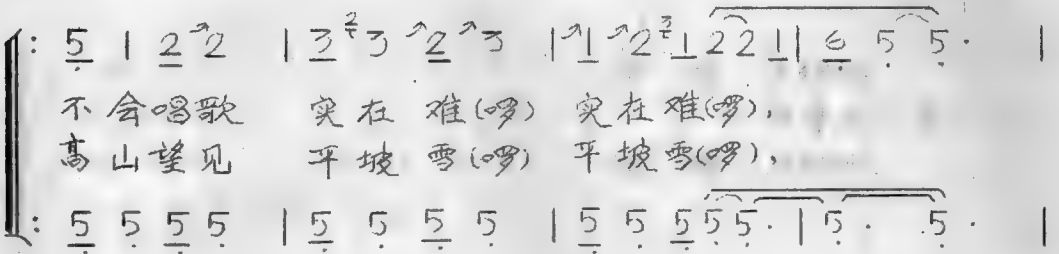 : 5 | 2 2 | 3 ²3 2 3 | 1 2 ³1 2 2 1 | 6 5 5 · |
不会唱歌 实在 难(啰) 实在难(啰),
高山望见 平坡 雪(啰) 平坡雪(啰),
: 5 5 5 5 | 5 5 5 5 | 5 5 5 5 5 · | 5 · 5 · |